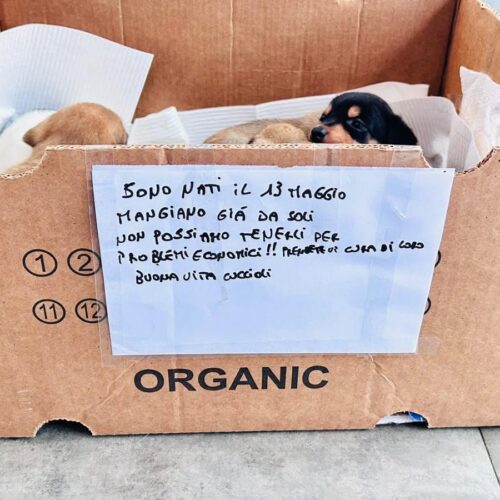 SONO NATI IL 13 MAGGIO
MANGIANO GIÁ DA SOLI
NON POSSIAMO TENERLI PER
PROBLEMI ECONOMICI!! PRENDETEVI CURA DI LORO
BUONA VITA CUCCIOLI
1 2
11 12
ORGANIC